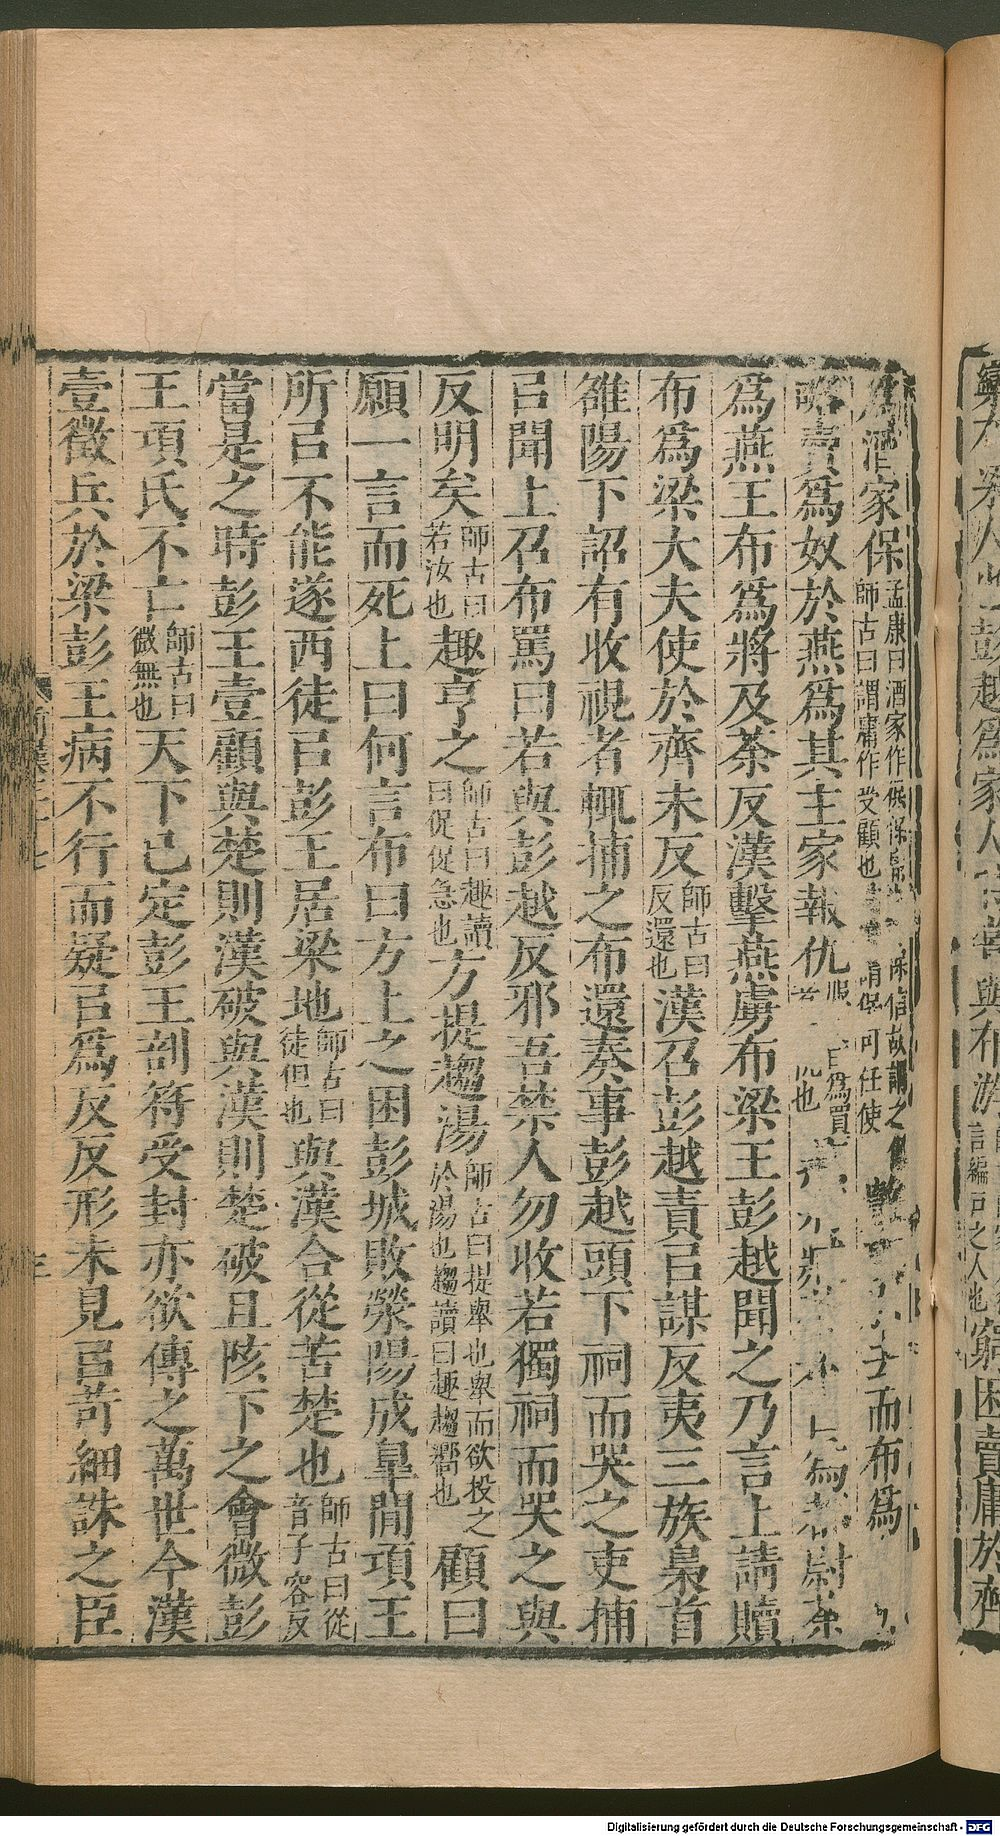 爲酒家保孟康曰酒家作保師古曰謂庸作受顧也謂保可任使而布爲
賣爲奴於燕爲其主家報仇
爲燕王布爲將及荼反漢擊燕虜布梁王彭越聞之乃言上請贖
布爲梁大夫使於齊未反師古曰反還也漢召彭越責㠯謀反夷三族梟首
雒陽下詔有收視者輒捕之布還奏事彭越頭下祠而哭之吏捕
㠯聞上召布罵曰若與彭越反邪吾禁人勿收若獨祠而哭之與
反明矣師古曰若汝也趣亨之師古曰趣讀曰促促急也方提趨湯師古曰提舉也舉而欲投之於湯也趨讀曰趣趨嚮也顧曰
願一言而死上曰何言布曰方上之困彭城敗滎陽成皐閒項王
所㠯不能遂西徒㠯彭王居梁地師古曰徒但也與漢合從苦楚也師古曰從音子容反
當是之時彭王壹顧與楚則漢破與漢則楚破且陔下之會微彭
王項氏不亡師古曰微無也天下已定彭王剖符受封亦欲傳之萬世今漢
壹徵兵於梁彭王病不行而疑㠯爲反反形未見㠯苛細誅之臣
彭越爲家人
與布游
言編戶之人也窮困賣庸於齊
Digitalisierung gefördert durch die Deutsche Forschungsgemeinschaft - DFG